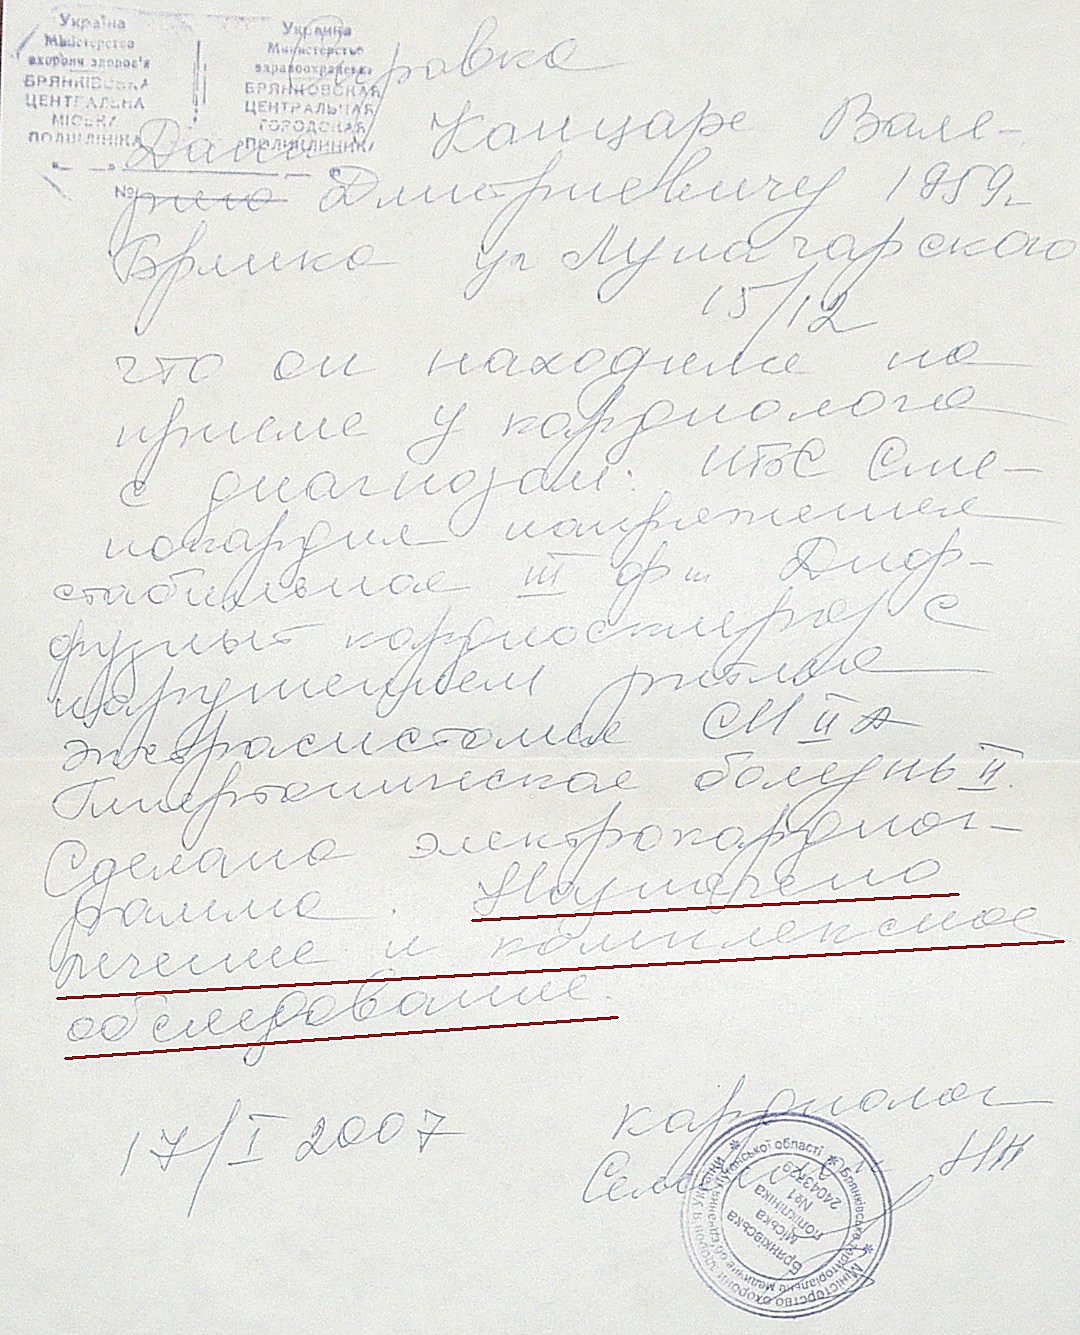 Україна
Міністерство
охорони здоров'я
БРЯНКІВСЬКА
ЦЕНТРАЛЬНА
МІСЬКА
ПОЛІКЛІНІКА
Украина
Министерство
здравоохранения
БРЯНКОВСКАЯ
ЦЕНТРАЛЬНАЯ
ГОРОДСКАЯ
ПОЛИКЛИНИКА
№
Справка
Дана Кацаре Вале-
рию Дмитриевичу 1959г
Брянка ул Луначарского
15/12
что он находился на
приеме у кардиолога
с диагнозом: ИБС Сте-
нокардия напряжения
стабильная III ф Диф-
фузный кардиосклероз с
нарушением ритма
экстрасистолия СН II А
Гипертоническая болезнь II.
Сделана электрокардиог-
рамма. Назначено
лечение и комплексное
обследование.
17/I 2007
кардиолог
НН
Міністерство охорони здоров'я України
Брянківське територіальне медичне об'єднання Луганської області
Брянківська
міська
поліклініка
№1